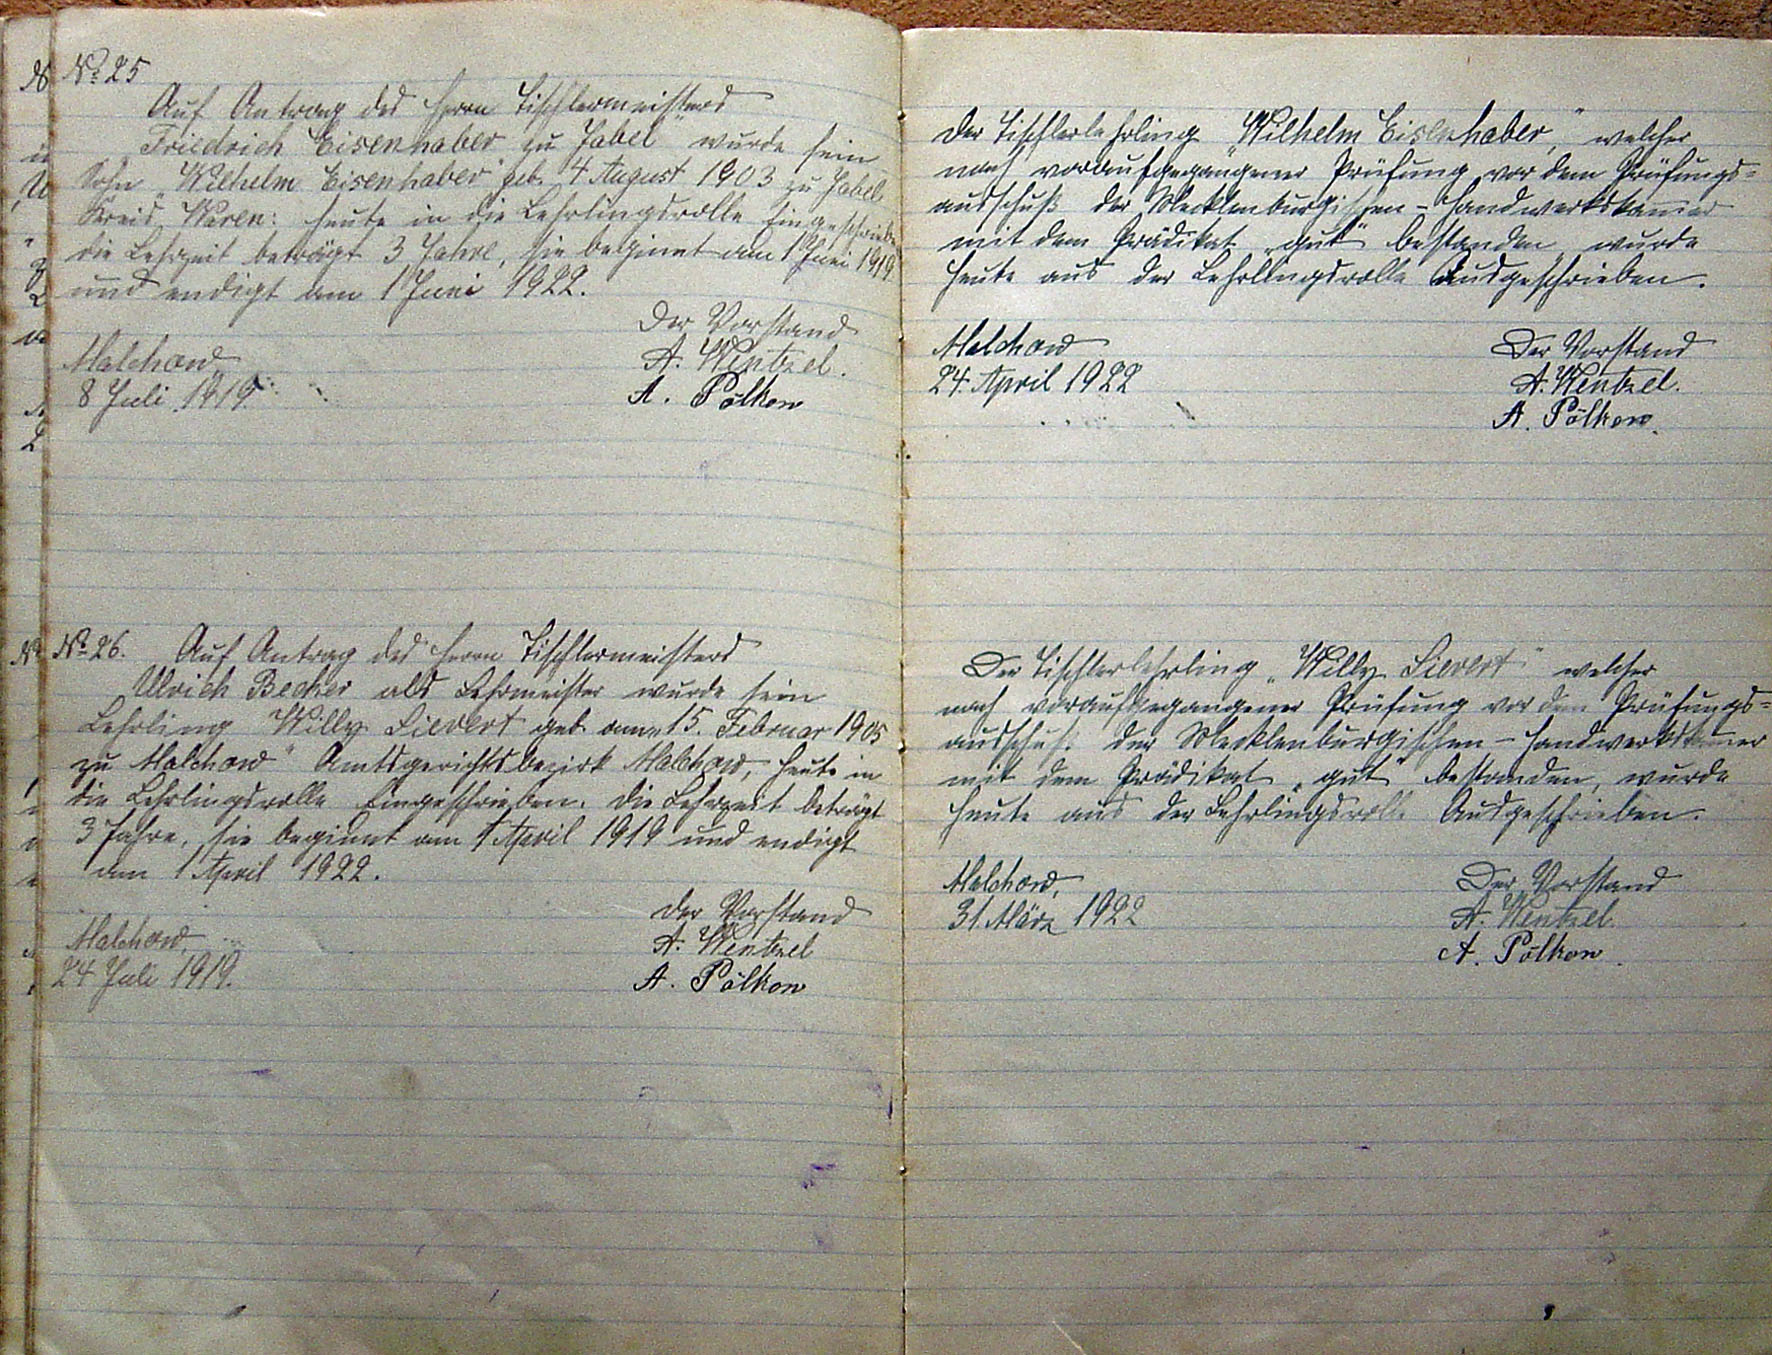 № 25
Auf Antrag des Herrn Tischlermeisters
Friedrich Eisenhaber zu Jabel" wurde sein
Sohn „Wilhelm Eisenhaber" geb. 4 August 1903 zu Jabel,
Kreis Waren: heute in die Lehrlingsrolle Eingeschrieben
die Lehrzeit beträgt 3 Jahre, sie beginnt am 1 Juni 1919
und endigt am 1 Juni 1922.
Der Vorstand
Malchow
A. Wentzel.
8 Juli 1919.
A. Pölkow
№ 26. Auf Antrag des Herrn Tischlermeisters
Ulrich Becker als Lehrmeister wurde sein
Lehrling Willy Sievert geb. am 15. Februar 1905
zu Malchow" Amtsgerichtsbezirk Malchow, heute in
die Lehrlingsrolle Eingeschrieben. Die Lehrzeit beträgt
3 Jahre, sie beginnt am 1 April 1919 und endigt
am 1 April 1922.
Der Vorstand
Malchow,
A. Wentzel
24 Juli 1919.
A. Pölkow
Der Tischlerlehrling „Wilhelm Eisenhaber," welcher
nach voraufgegangener Prüfung vor dem Prüfungs=
ausschuß der Mecklenburgischen - Handwerkskammer
mit dem Prädikat „gut" bestanden, wurde
heute aus der Lehrlingsrolle Ausgeschrieben.
Malchow
Der Vorstand
24. April 1922
A. Wentzel.
A. Pölkow.
Der Tischlerlehrling „Willy Sievert" welcher
nach voraufgegangener Prüfung vor dem Prüfungs=
ausschuß der Mecklenburgischen - Handwerkskammer
mit dem Prädikat „gut" bestanden, wurde
heute aus der Lehrlingsrolle Ausgeschrieben.
Malchow,
Der Vorstand
31. März 1922
A. Wentzel.
A. Pölkow.